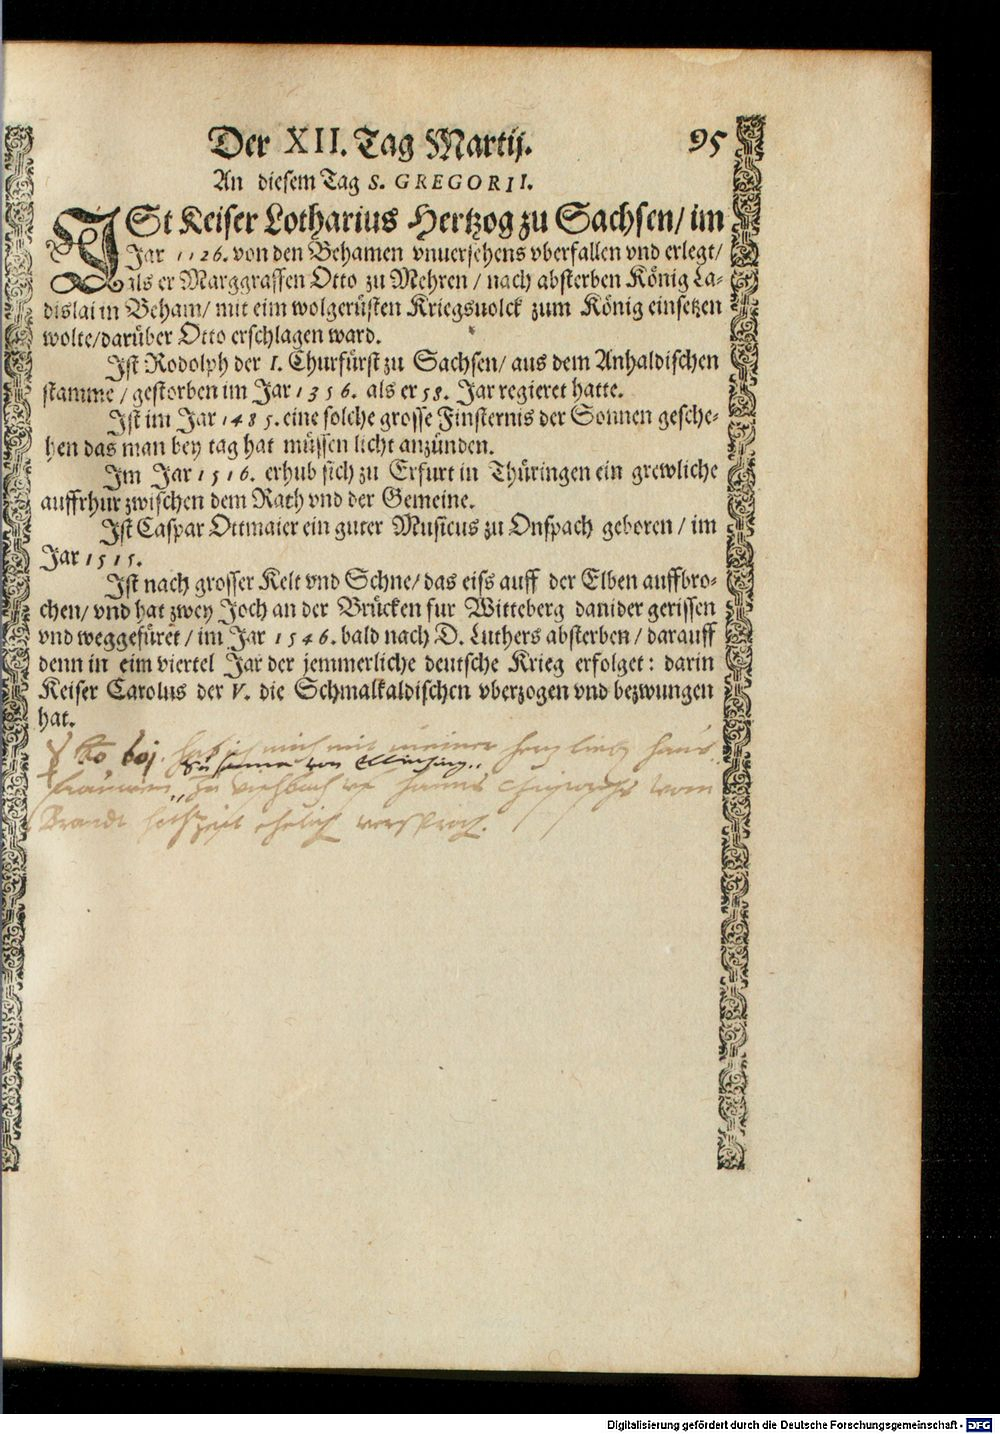 Der XII. Tag Martij. 95
An diesem Tag S. GREGORII.
ISt Keiser Lotharius Hertzog zu Sachsen/ im
Jar 1126. von den Behamen vnuersehens vberfallen vnd erlegt/
als er Marggraffen Otto zu Mehren / nach absterben König La-
dislai in Beham/ mit eim wolgerüsten Kriegsuolck zum König einsetzen
wolte/darüber Otto erschlagen ward.
Ist Rodolph der I. Churfürst zu Sachsen/ aus dem Anhaldischen
stamme / gestorben im Jar 1356. als er 58. Jar regieret hatte.
Ist im Jar 1485. eine solche grosse Finsternis der Sonnen gesche-
hen das man bey tag hat müssen licht anzünden.
Im Jar 1516. erhub sich zu Erfurt in Thüringen ein grewliche
auffrhur zwischen dem Rath vnd der Gemeine.
Ist Caspar Ottmaier ein guter Musicus zu Onspach geboren / im
Jar 1515.
Ist nach grosser Kelt vnd Schne/ das eiss auff der Elben auffbro-
chen/ vnd hat zwey Joch an der Brücken fur Witteberg danider gerissen
vnd weggefüret / im Jar 1546. bald nach D. Luthers absterben / darauff
denn in eim viertel Jar der jemmerliche deutsche Krieg erfolget: darin
Keiser Carolus der V. die Schmalkaldischen vberzogen vnd bezwungen
hat.
hab ich mich mit meiner hertzlieben haus
frauwen zu hanns vom
Brandt hochzeit ehelich versproch.
Digitalisierung gefördert durch die Deutsche Forschungsgemeinschaft - DFG